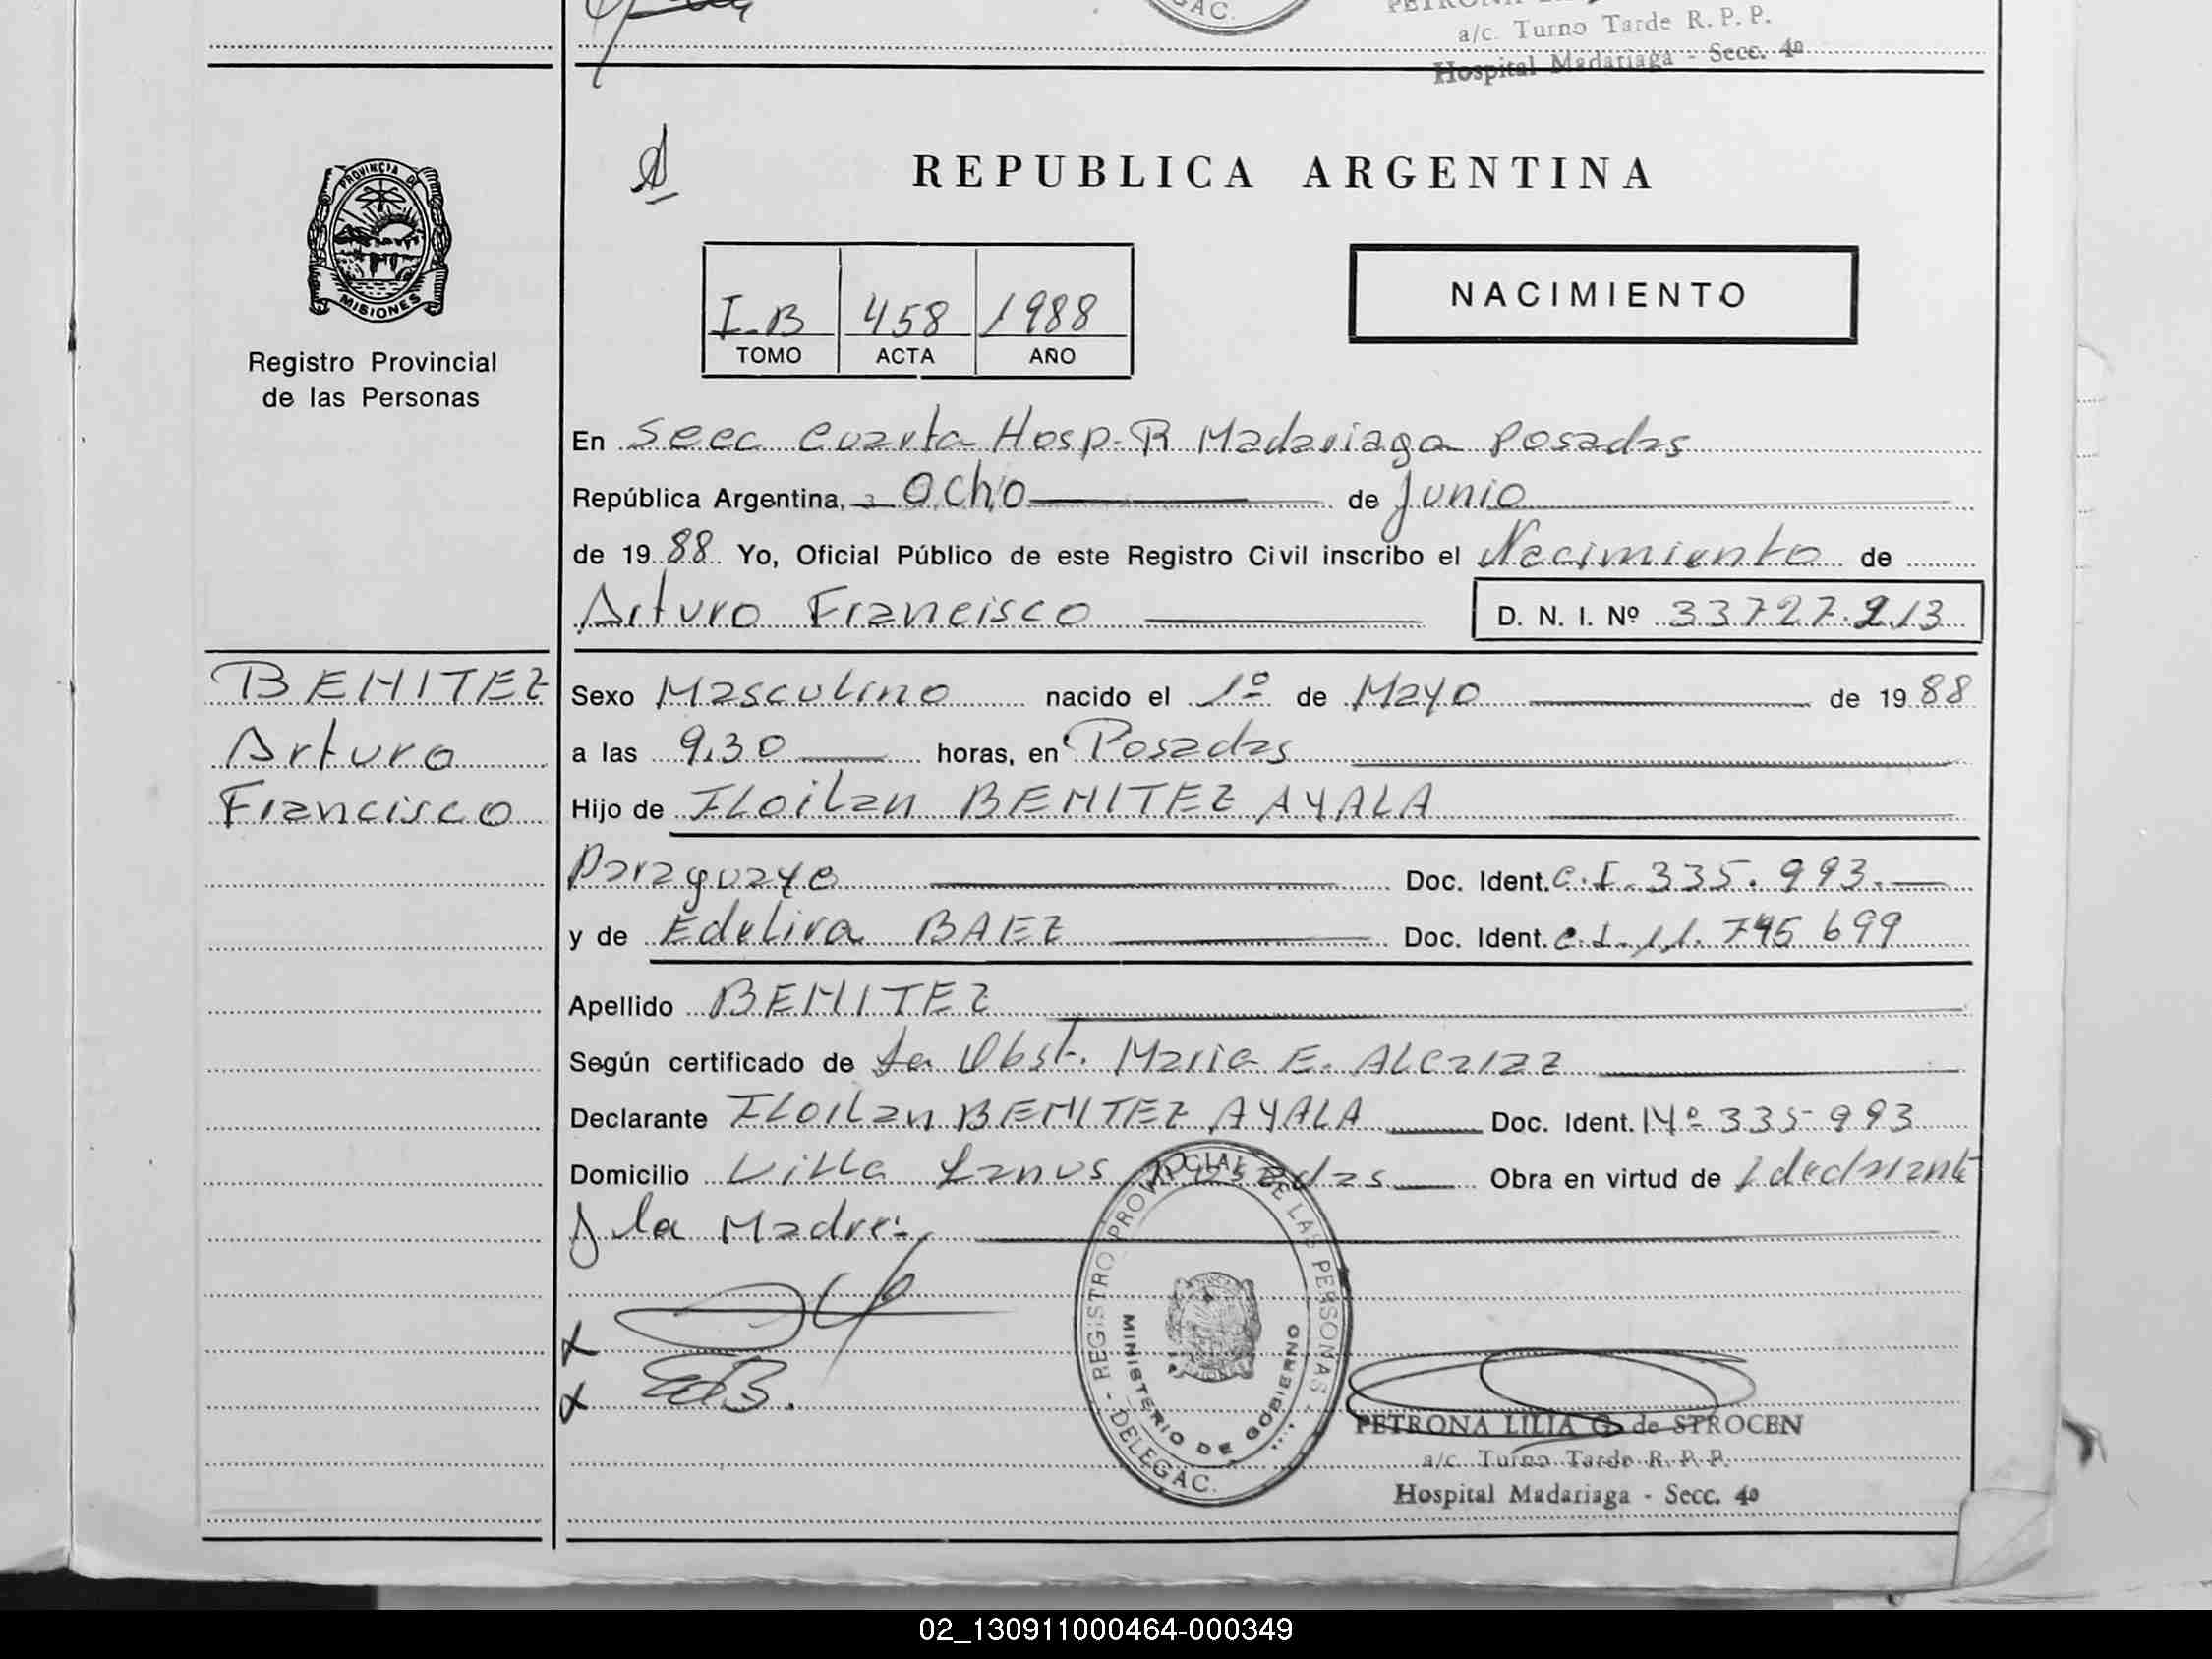 PETRONA
a/c. Turno Tarde R. P. P.
Hospital Madariaga - Secc. 4ª
GAC.
PROVINCIA DE
MISIONES
Registro Provincial
de las Personas
REPUBLICA ARGENTINA
I-B 458 1988
TOMO ACTA AÑO
NACIMIENTO
En Secc Cuarta Hosp. R Madariaga Posadas
República Argentina, a Ocho de Junio
de 1988 Yo, Oficial Público de este Registro Civil inscribo el Nacimiento de
Arturo Francisco D. N. I. Nº 33727.213
BENITEZ
Arturo
Francisco
Sexo Masculino nacido el 1º de Mayo de 1988
a las 9,30 horas, en Posadas
Hijo de Floilan BENITEZ AYALA
Paraguayo Doc. Ident. C.I. 335.993.
y de Edelira BAEZ Doc. Ident. C.I. 11.745 699
Apellido BENITEZ
Según certificado de La Obst. Maria E. Alcaraz
Declarante Floilan BENITEZ AYALA Doc. Ident. Nº 335 993
Domicilio Villa Lanus Posadas Obra en virtud de declarante
y la Madre:
x
x EdB.
REGISTRO PROVINCIAL DE LAS PERSONAS - DELEGAC.
MINISTERIO DE GOBIERNO
PETRONA LILIA G. de STROCEN
a/c. Turno Tarde R. P. P.
Hospital Madariaga - Secc. 4ª
02_130911000464-000349